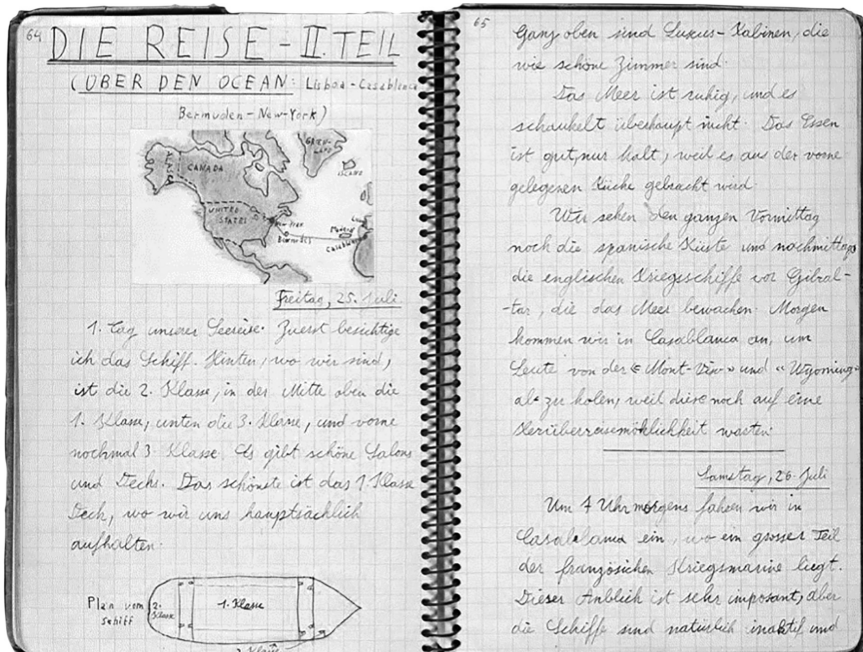 64
DIE REISE - II. TEIL
(ÜBER DEN OCEAN: Lisboa - Casablanca
Bermuden - New-York)
ALASKA
CANADA
GRÖN-
LAND
ISLAND
UNITED
STATES
New-York
Bermudas
Madeira
Casablanca
Freitag, 25. Juli
1. Tag unserer Seereise. Zuerst besichtige
ich das Schiff. Hinten, wo wir sind,
ist die 2. Klasse, in der Mitte oben die
1. Klasse, unten die 3. Klasse, und vorne
nochmal 3 Klasse. Es gibt schöne Salons
und Decks. Das schönste ist das 1. Klasse
Deck, wo wir uns hauptsächlich
aufhalten.
Plan vom
Schiff
2.
Klasse
1. Klasse
65
Ganz oben sind Luxus-Kabinen, die
wie schöne Zimmer sind.
Das Meer ist ruhig, und es
schaukelt überhaupt nicht. Das Essen
ist gut, nur kalt, weil es aus der vorne
gelegenen Küche gebracht wird.
Wir sehen den ganzen Vormittag
noch die spanische Küste und nachmittags
die englischen Kriegsschiffe vor Gibral-
-tar, die das Meer bewachen. Morgen
kommen wir in Casablanca an, um
Leute von der « Mont-Viso » und « Wyoming»
ab zu holen, weil diese noch auf eine
Herüberreisemöklichkeit warten.
Samstag, 26. Juli
Um 4 Uhr morgens fahren wir in
Casablanca ein, wo ein grosser Teil
der französichen Kriegsmarine liegt.
Dieser Anblick ist sehr imposant, aber
die Schiffe sind natürlich inaktif und